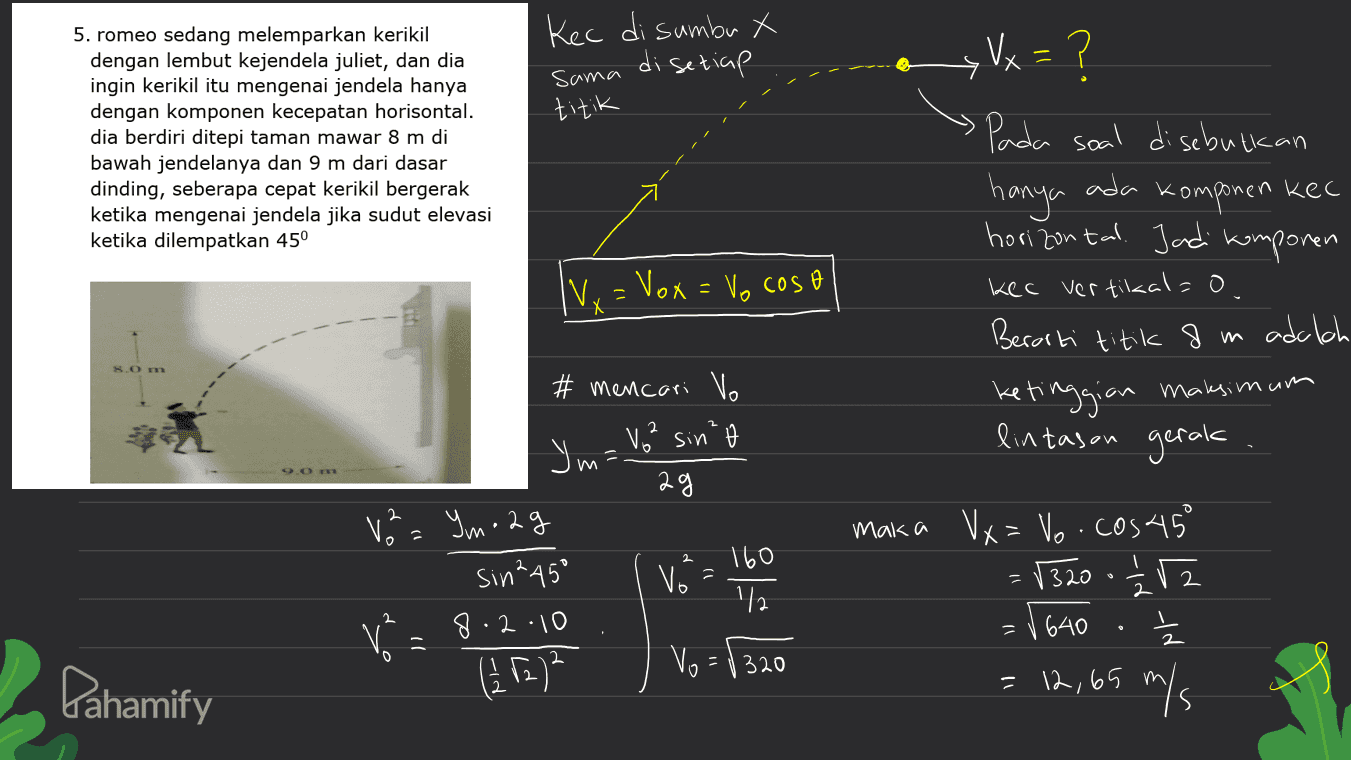 5. romeo sedang melemparkan kerikil
dengan lembut kejendela juliet, dan dia
ingin kerikil itu mengenai jendela hanya
dengan komponen kecepatan horisontal.
dia berdiri ditepi taman mawar 8 m di
bawah jendelanya dan 9 m dari dasar
dinding, seberapa cepat kerikil bergerak
ketika mengenai jendela jika sudut elevasi
ketika dilempatkan 45⁰
8.0 m
9.0 m
Kec di sumbu X
sama di setiap
titik
Vx = ?
Pada soal disebutkan
hanya ada komponen kec
horizontal. Jadi komponen
kec vertikal = 0.
Berarti titik 8 m adalah
ketinggian maksimum
lintasan gerak.
Vx = Vox = Vo cos θ
# mencari Vo
Ym = Vo² sin² θ / 2g
Vo² = Ym . 2g / sin² 45°
Vo² = 8 . 2 . 10 / (½ √2)²
Vo² = 160 / 1/2
Vo = √320
maka Vx = Vo . cos 45°
= √320 . ½ √2
= √640 . ½
= 12,65 m/s
Pahamify